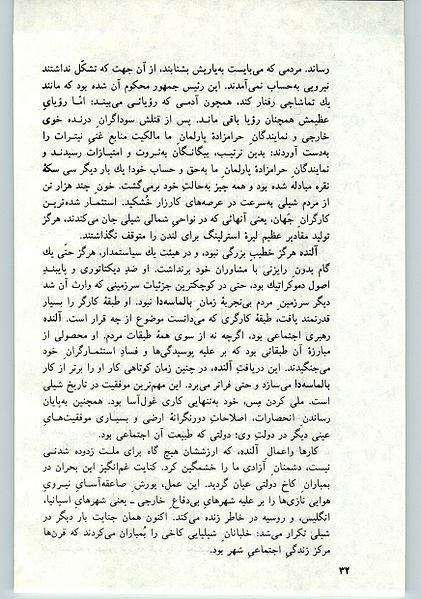 رساند. مردمی که می‌بایست به‌یاریش بشتابند، از آن جهت که تشکّل نداشتند
نیرویی به‌حساب نمی‌آمدند. این رئیس جمهور محکوم آن شده بود که مانند
یك تماشاچی رفتار کند، همچون آدمی که رؤیائی می‌بیند: امّا رؤیایِ
عظیمش همچنان رؤیا باقی ماند. پس از قتلش سوداگرانِ درنده خویِ
خارجی و نمایندگانِ حرامزادهٔ پارلمانِ ما مالکیت منابع غنیِ نیترات را
به‌دست آوردند: بدین ترتیب، بیگانگان به‌ثروت و امتیازات رسیدند و
نمایندگانِ حرامزادهٔ پارلمانِ ما به‌حق و حساب خود! یك بار دیگر سی سکهٔ
نقره مبادله شده بود و همه چیز به‌حالتِ خود برمی‌گشت. خونِ چند هزار تن
از مردم شیلی به‌سرعت در عرصه‌های کارزار خُشکید. استثمار شده‌ترین
کارگرانِ جَهان، یعنی آنهائی که در نواحی شمالی شیلی جان می‌کندند، هرگز
تولید مقادیر عظیم لیرهٔ استرلینگ برای لندن را متوقف نگذاشتند.
آلنده هرگز خطیبِ بزرگی نبود، و در هیئت یك سیاستمدار، هرگز حتّی یك
گام بدونِ رایزنی با مشاوران خود برنداشت. او ضدِ دیکتاتوری و پایبندِ
اصولِ دموکراتیك بود، حتی در کوچکترین جزئیات سرزمینی که وارث آن شد
دیگر سرزمینِ مردم بی‌تجربهٔ زمانِ بالماسه‌دا نبود. او طبقهٔ کارگر را بسیار
قدرتمند یافت، طبقهٔ کارگری که می‌دانست موضوع از چه قرار است. آلنده
رهبری اجتماعی بود، اگرچه نه از سوی همهٔ طبقات مردم. او محصولی از
مبارزهٔ آن طبقاتی بود که بر علیه پوسیدگی‌ها و فسادِ استثمارگرانِ خود
می‌جنگیدند. این دریافتِ آلنده، در چنین زمان کوتاهی کار او را برتر از کار
بالماسه‌دا می‌سازد و حتی فراتر می‌برد. این مهم‌ترین موفقیت در تاریخ شیلی
است. ملی کردن مِس، خود به‌تنهایی کاری غول‌آسا بود. همچنین به‌پایان
رساندنِ انحصارات، اصلاحاتِ دورنگرانهٔ ارضی و بسیاری موفقیت‌هایِ
عینی دیگر در دولتِ وی؛ دولتی که طبیعت آن اجتماعی بود.
کارها و‌اعمالِ آلنده، که ارزششان هیچ گاه برای ملت زدوده شدنی
نیست، دشمنانِ آزادی ما را خشمگین کرد. کنایت غم‌انگیز این بحران در
بمبارانِ کاخ دولتی عیان گردید. این عمل، یورشِ صاعقه‌آسایِ نیرویِ
هوایی نازی‌ها را بر علیه شهرهایِ بی‌دفاعِ خارجی ـ یعنی شهرهایِ اسپانیا،
انگلیس، و روسیه در خاطر زنده می‌کند. اکنون همان جنایت بار دیگر در
شیلی تکرار می‌شد: خلبانانِ شیلیایی کاخی را بُمباران می‌کردند که قرن‌ها
مرکز زندگیِ اجتماعیِ شهر بود.
۳۲